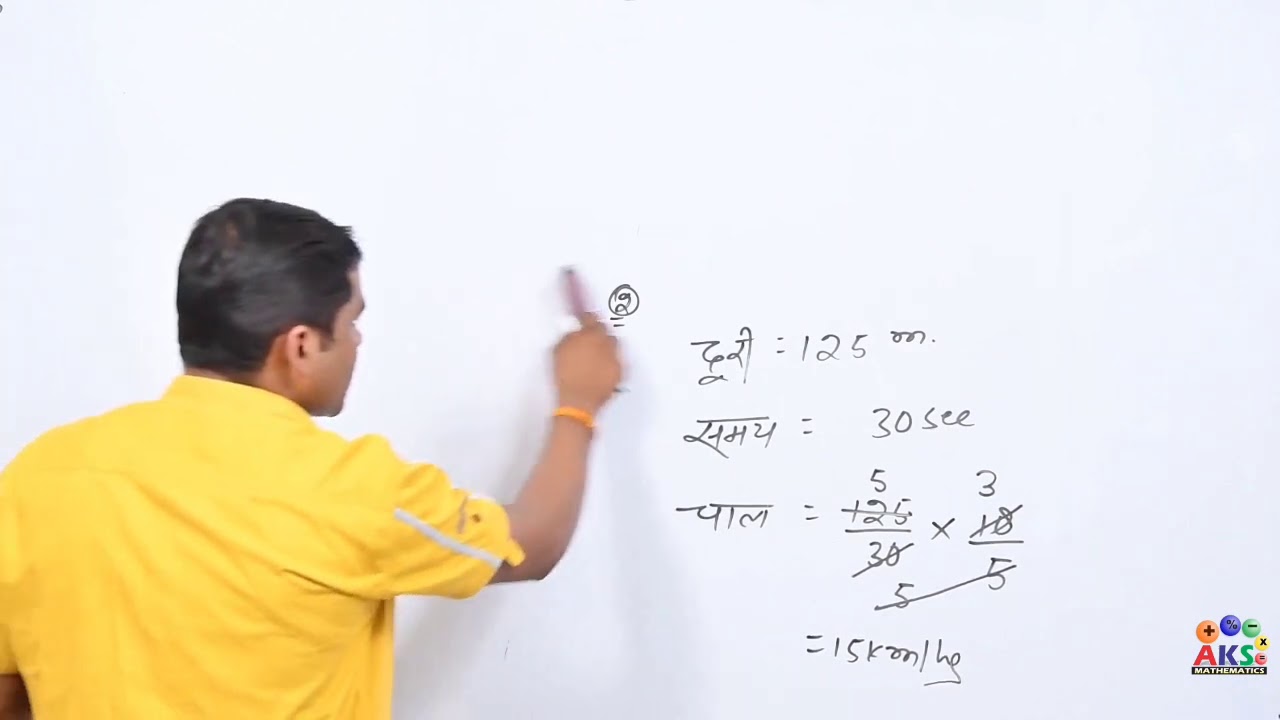 2
दूरी = 125 m.
समय = 30 sec
5 3
चाल = 125/30 × 18/5
5
= 15 km/hr
+ % -
×
AKS =
MATHEMATICS